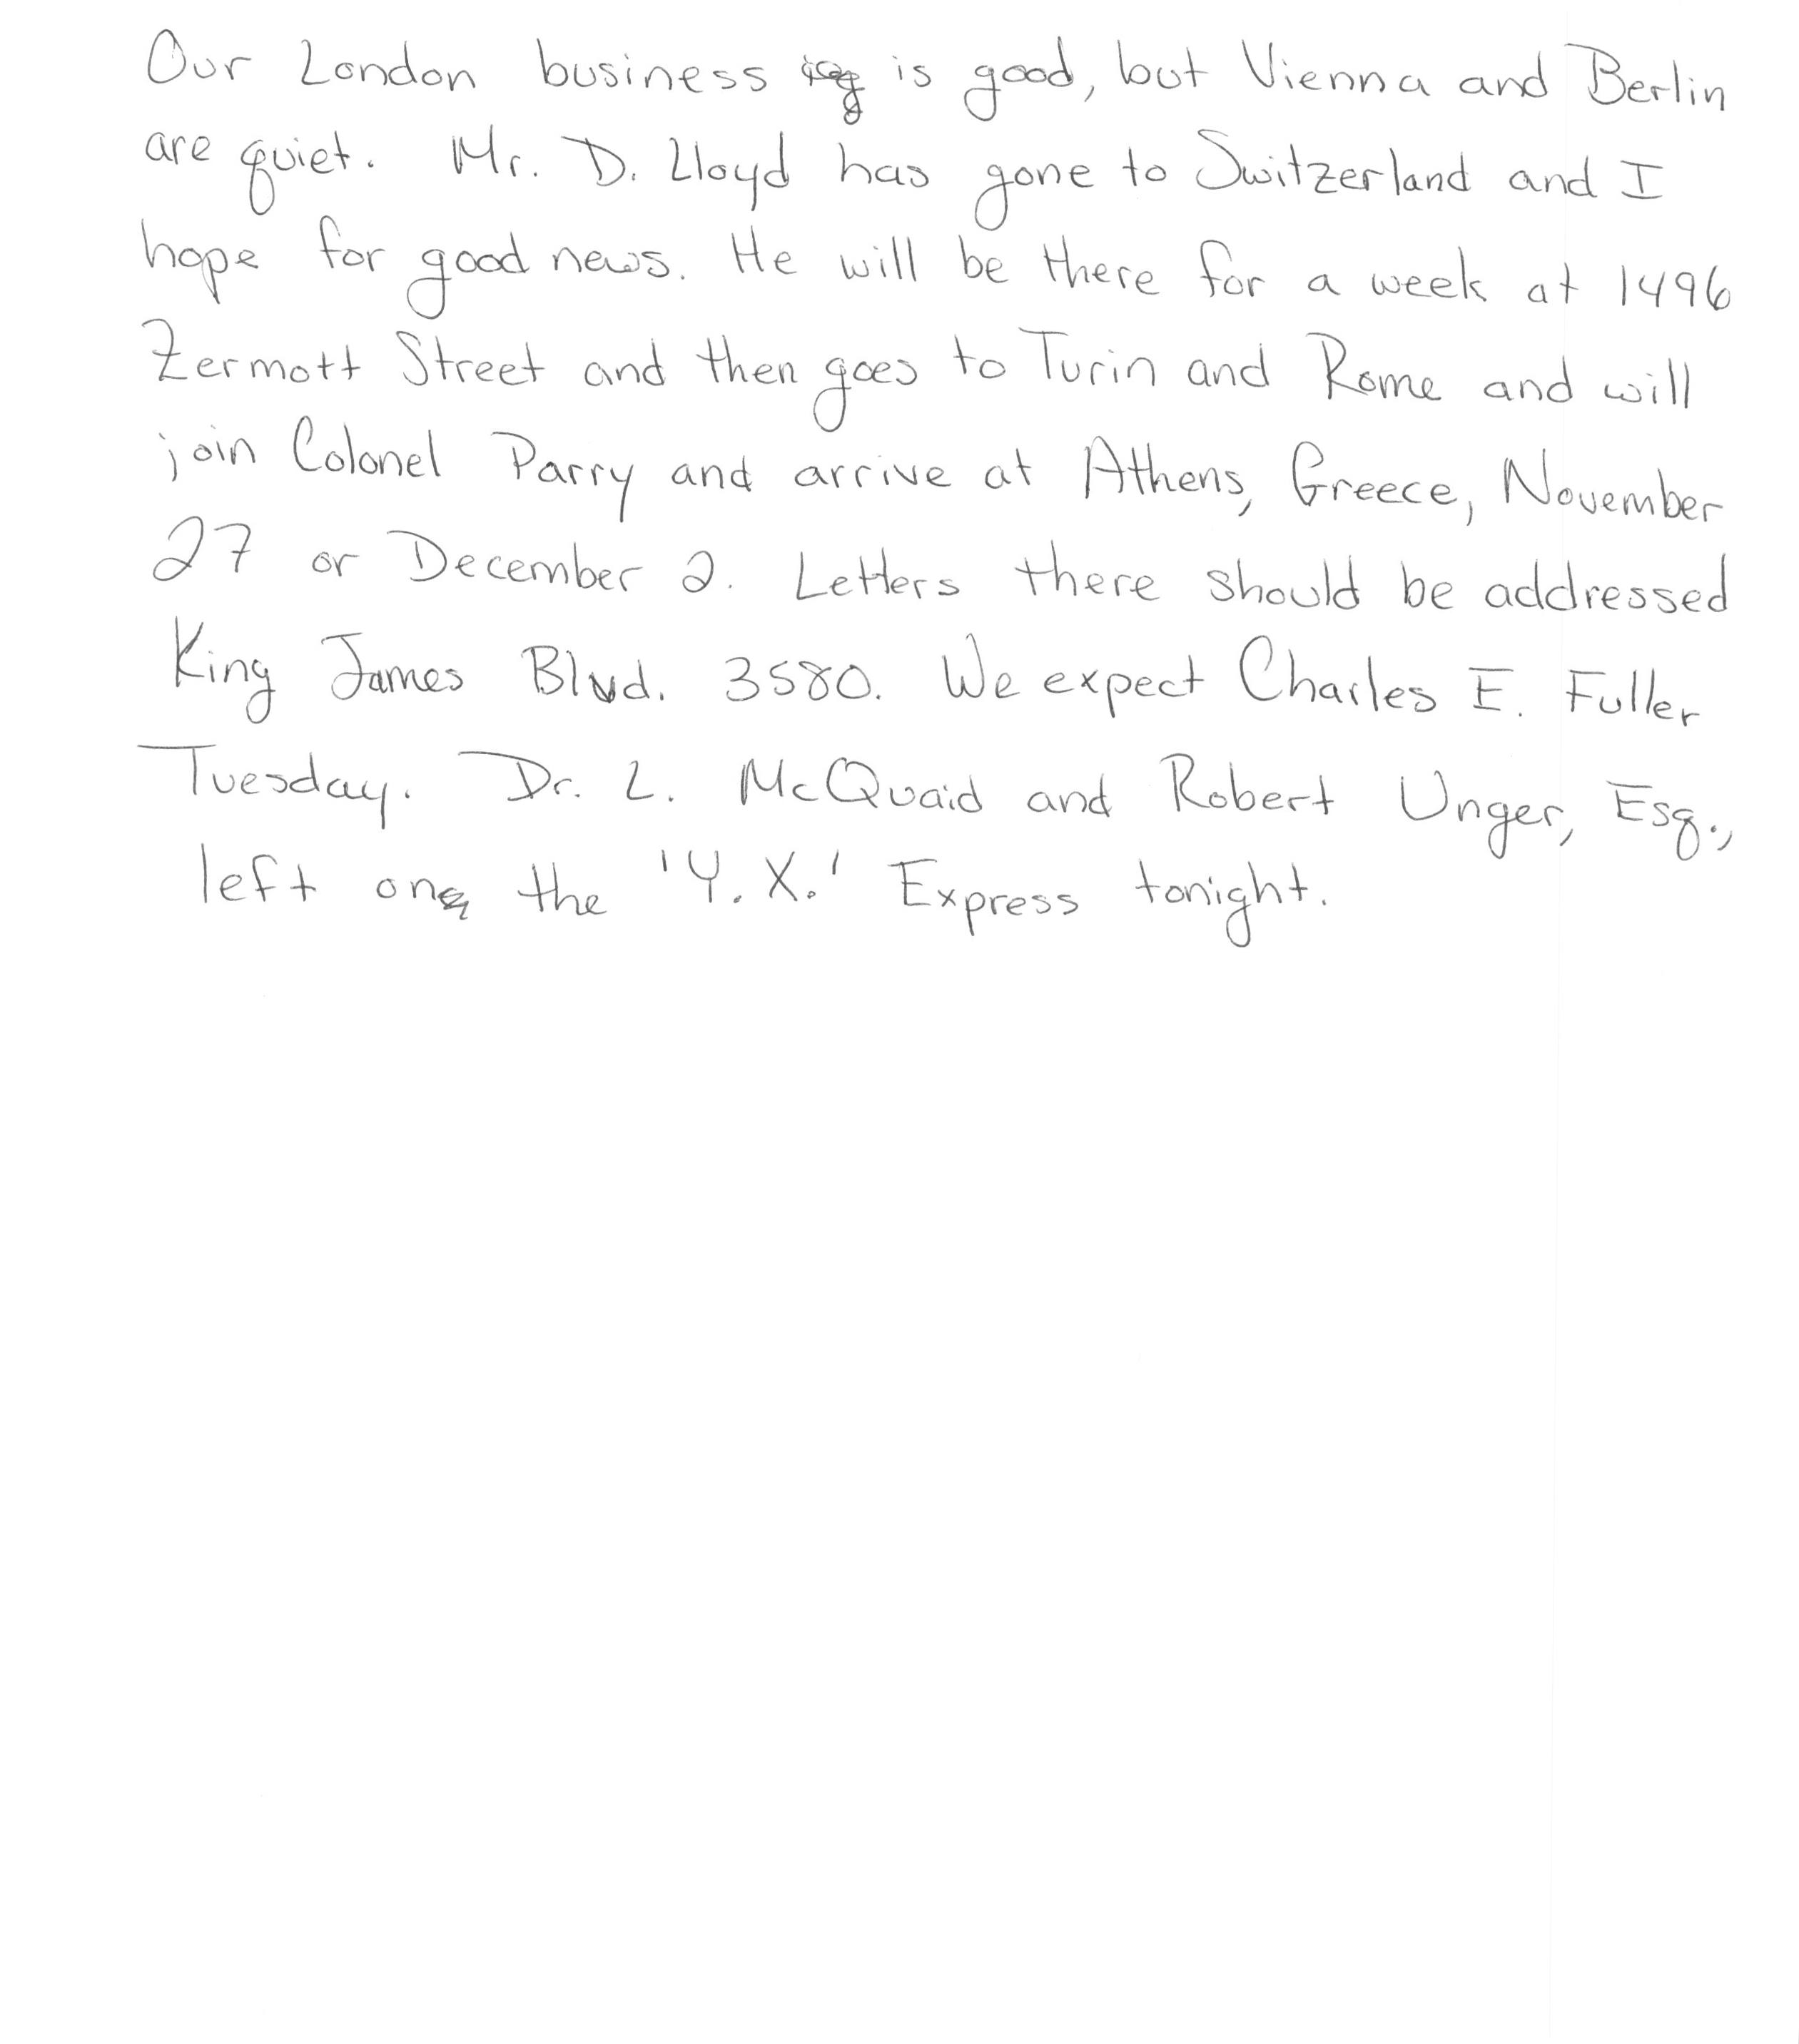 Our London business is good, but Vienna and Berlin
are quiet. Mr. D. Lloyd has gone to Switzerland and I
hope for good news. He will be there for a week at 1496
Zermott Street and then goes to Turin and Rome and will
join Colonel Parry and arrive at Athens, Greece, November
27 or December 2. Letters there should be addressed
King James Blvd. 3580. We expect Charles E. Fuller
Tuesday. Dr. L. McQuaid and Robert Unger, Esq.,
left on the 'Y. X.' Express tonight.